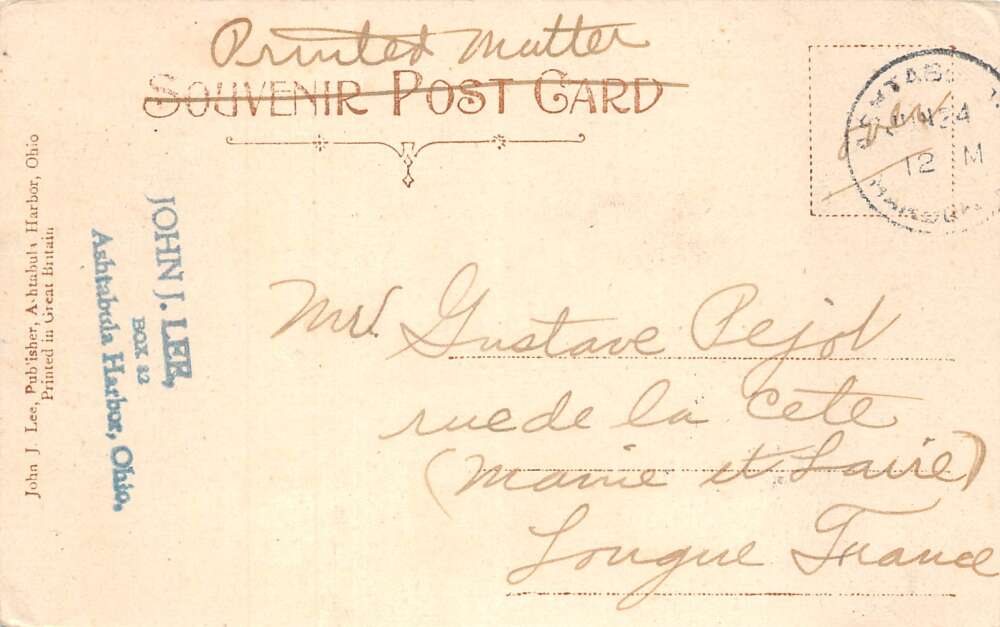 Printed Matter
SOUVENIR POST CARD
ASHTABULA
JUN 24
12 M
HARBOR
John J. Lee, Publisher, Ashtabula Harbor, Ohio
Printed in Great Britain
JOHN J. LEE,
BOX 82
Ashtabula Harbor, Ohio,
Mr. Gustave Pejot
rue de la Cete
(Maine et Loire)
Longue France